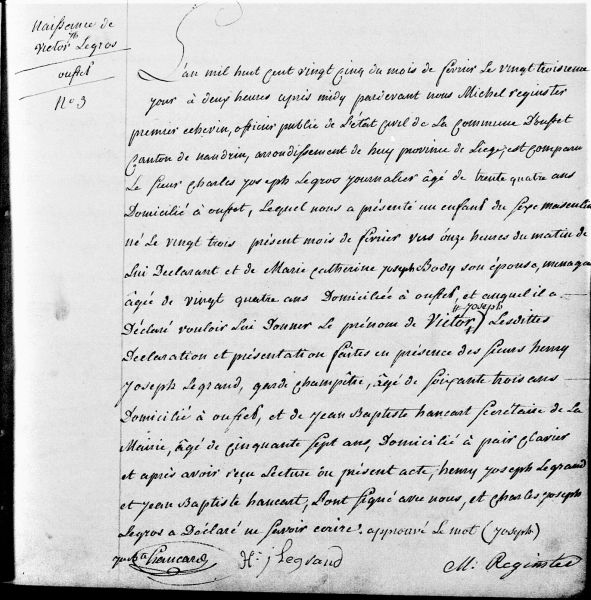 Naissence de
Victor Jh Legros
ouffet
No 3
L'an mil huit cent vingt cinq du mois de fevrier Le vingt troisieme
jour à deux heures apres midy pardevant nous Michel reginster
premier echevin, officier publie de L'état Civil de La Commune D'ouffet
Canton de nandrin, arrondissement de huy province de Liege, est comparu
Le sieur Charles joseph Legros journalier âgé de trente quatre ans
Domicilié à ouffet, Lequel nous a présenté un enfant du sexe masculin
né Le vingt trois présent mois de fevrier vers onze heures du matin de
Lui Declarant et de Marie Catherine joseph Body son épouse, menagere
âgée de vingt quatre ans Domiciliée à ouffet, et auquel il a
joseph
Déclaré vouloir Lui Donner Le prénom de Victor, Lesdittes
Declaration et présentation faites en présence des sieurs henry
joseph Legrand, garde champêtre, âgé de soixante trois ans
Domicilié à ouffet, et de jean Baptiste hancart Secrétaire de La
Mairie, âgé de cinquante sept ans, Domicilié à pair Clavier
et après avoir reçu Lecture du présent acte, henry joseph Legrand
et jean Baptiste hancart, L'ont signé avec nous, et charles joseph
Legros a Déclaré ne savoir ecrire. approuvé Le mot (joseph)
hancard H: j Legrand M. Reginster